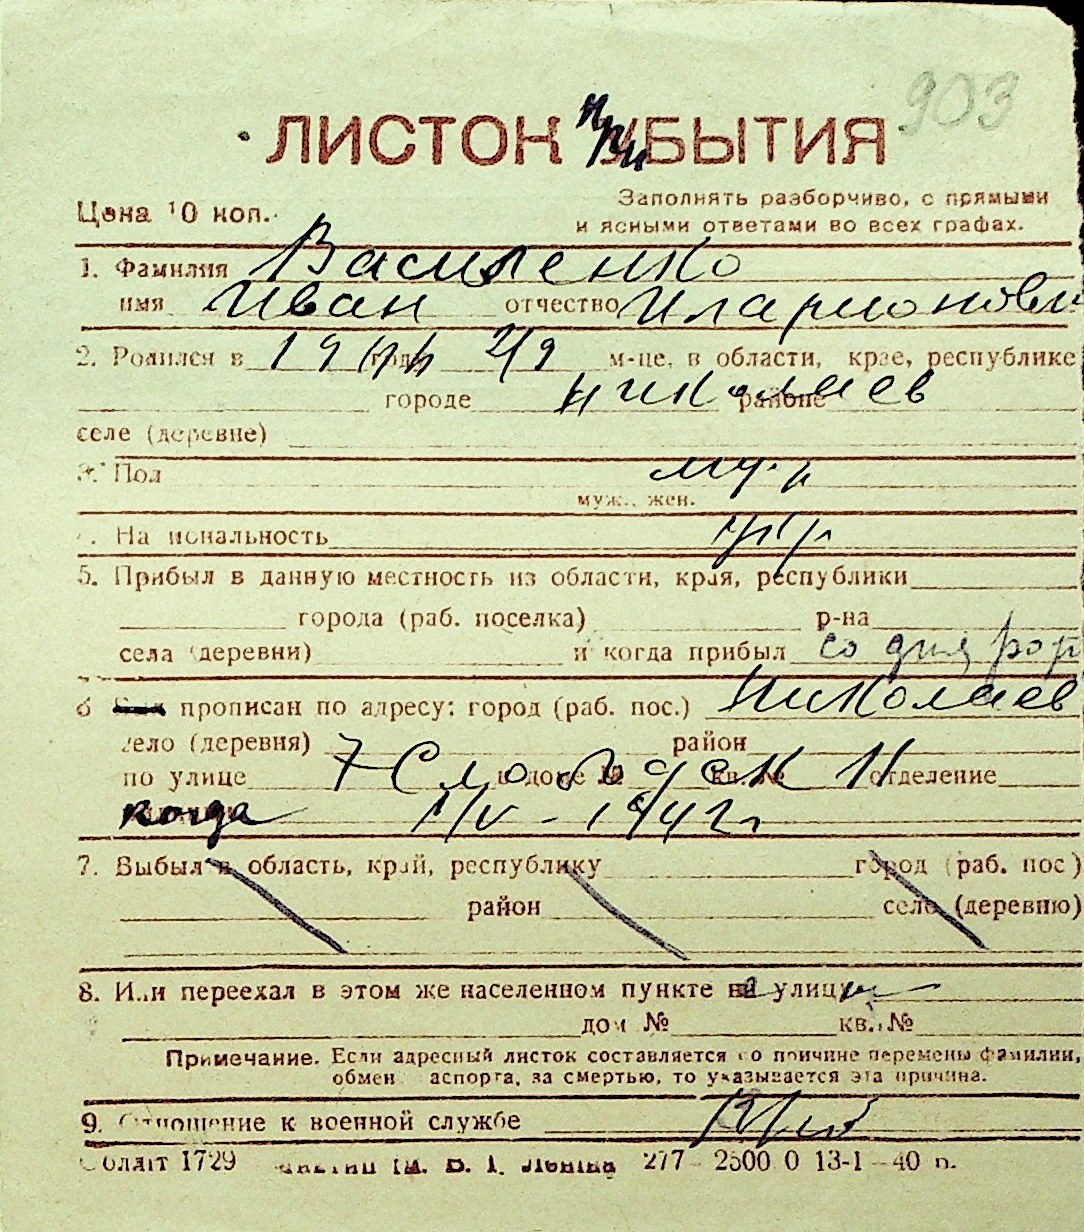 903
ЛИСТОК ПРИБЫТИЯ
Цена 10 коп.
Заполнять разборчиво, с прямыми
и ясными ответами во всех графах.
1. Фамилия Василенко
имя Иван отчество Иларионови
2. Родился в 19 году 2/9 м-це, в области, крае, республике
городе Николаев районе
селе (деревне)
3. Пол муж
муж., жен.
Национальность укр
5. Прибыл в данную местность из области, края, республики
города (раб. поселка) р-на
села (деревни) и когда прибыл со дня рор
6 прописан по адресу: город (раб. пос.) Николаев
село (деревня) район
по улице 7 Слободск 11 в доме № кв. № отделение
когда 1/V - 1942 г
7. Выбыл в область, край, республику город (раб. пос)
район село (деревню)
8. Или переехал в этом же населенном пункте на улицу
дом № кв. №
Примечание. Если адресный листок составляется по причине перемены фамилии,
обмен паспорта, за смертью, то указывается эта причина.
9. Отношение к военной службе
Облліт 1729 ім. В. І. Леніна 277—2500 0 13-1—40 р.